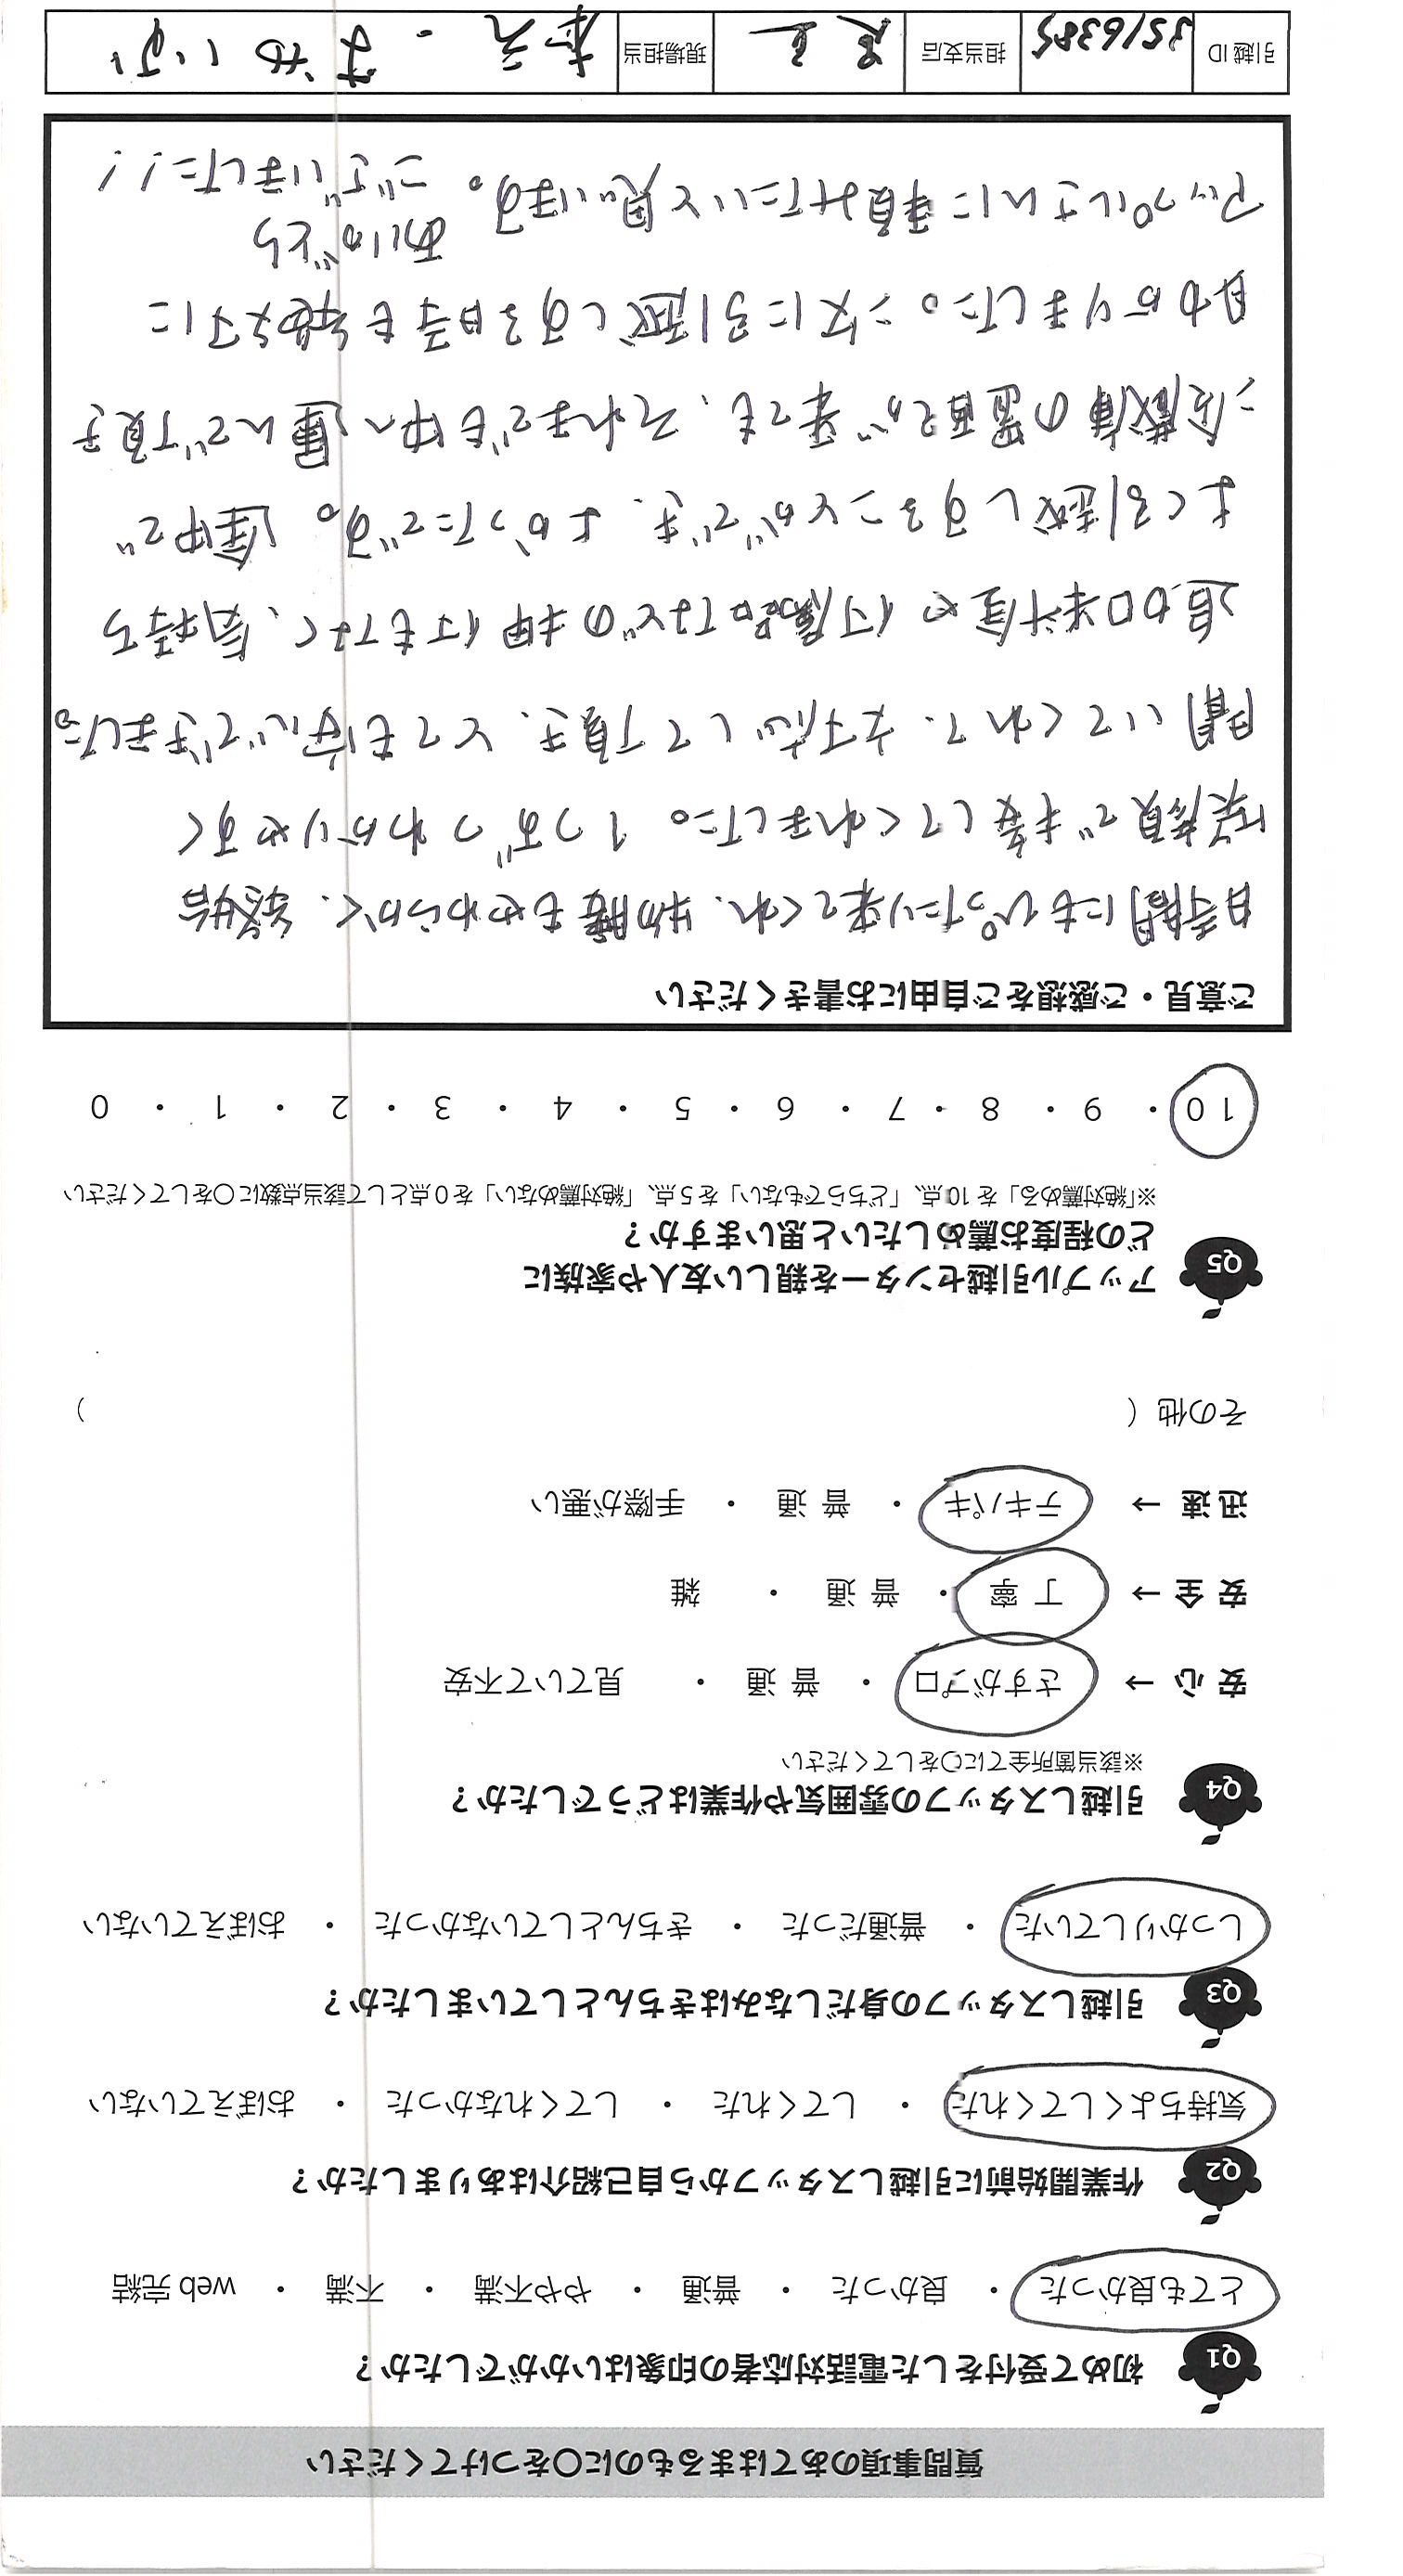 質問事項のあてはまるものに○をつけてください
Q1 初めて受付をした電話対応者の印象はいかがでしたか?
とても良かった ・ 良かった ・ 普通 ・ やや不満 ・ 不満 ・ web 完結
Q2 作業開始前に引越しスタッフから自己紹介はありましたか?
気持ちよくしてくれた ・ してくれた ・ してくれなかった ・ おぼえていない
Q3 引越しスタッフの身だしなみはきちんとしていましたか?
しっかりしていた ・ 普通だった ・ きちんとしていなかった ・ おぼえていない
Q4 引越しスタッフの雰囲気や作業はどうでしたか?
※該当箇所全てに○をしてください
安 心 → さすがプロ ・ 普 通 ・ 見ていて不安
安 全 → 丁 寧 ・ 普 通 ・ 雑
迅 速 → テキパキ ・ 普 通 ・ 手際が悪い
その他 ( )
Q5 アップル引越センターを親しい友人や家族に
どの程度お薦めしたいと思いますか?
※「絶対薦める」を 10 点、「どちらでもない」を 5 点、「絶対薦めない」を 0 点として該当点数に○をしてください
10 ・ 9 ・ 8 ・ 7 ・ 6 ・ 5 ・ 4 ・ 3 ・ 2 ・ 1 ・ 0
ご意見・ご感想をご自由にお書きください
時間にもぴったり来てくれ、物腰もやわらかく、終始
笑顔で接してくれました。1つずつわかりやすく
聞いてくれて、対応して頂き、とても安心できました。
追加料金や付属品などの押付もなく、気持ち
よく引越しすることができ、よかったです。途中で
冷蔵庫の置配が来ても、それまでも中へ運んで頂き
助かりました。次に引越しする時も絶対に
アップルさんに頼みたいと思います。ありがとう
ございました!!
引越ID 3516385 担当支店 現場担当